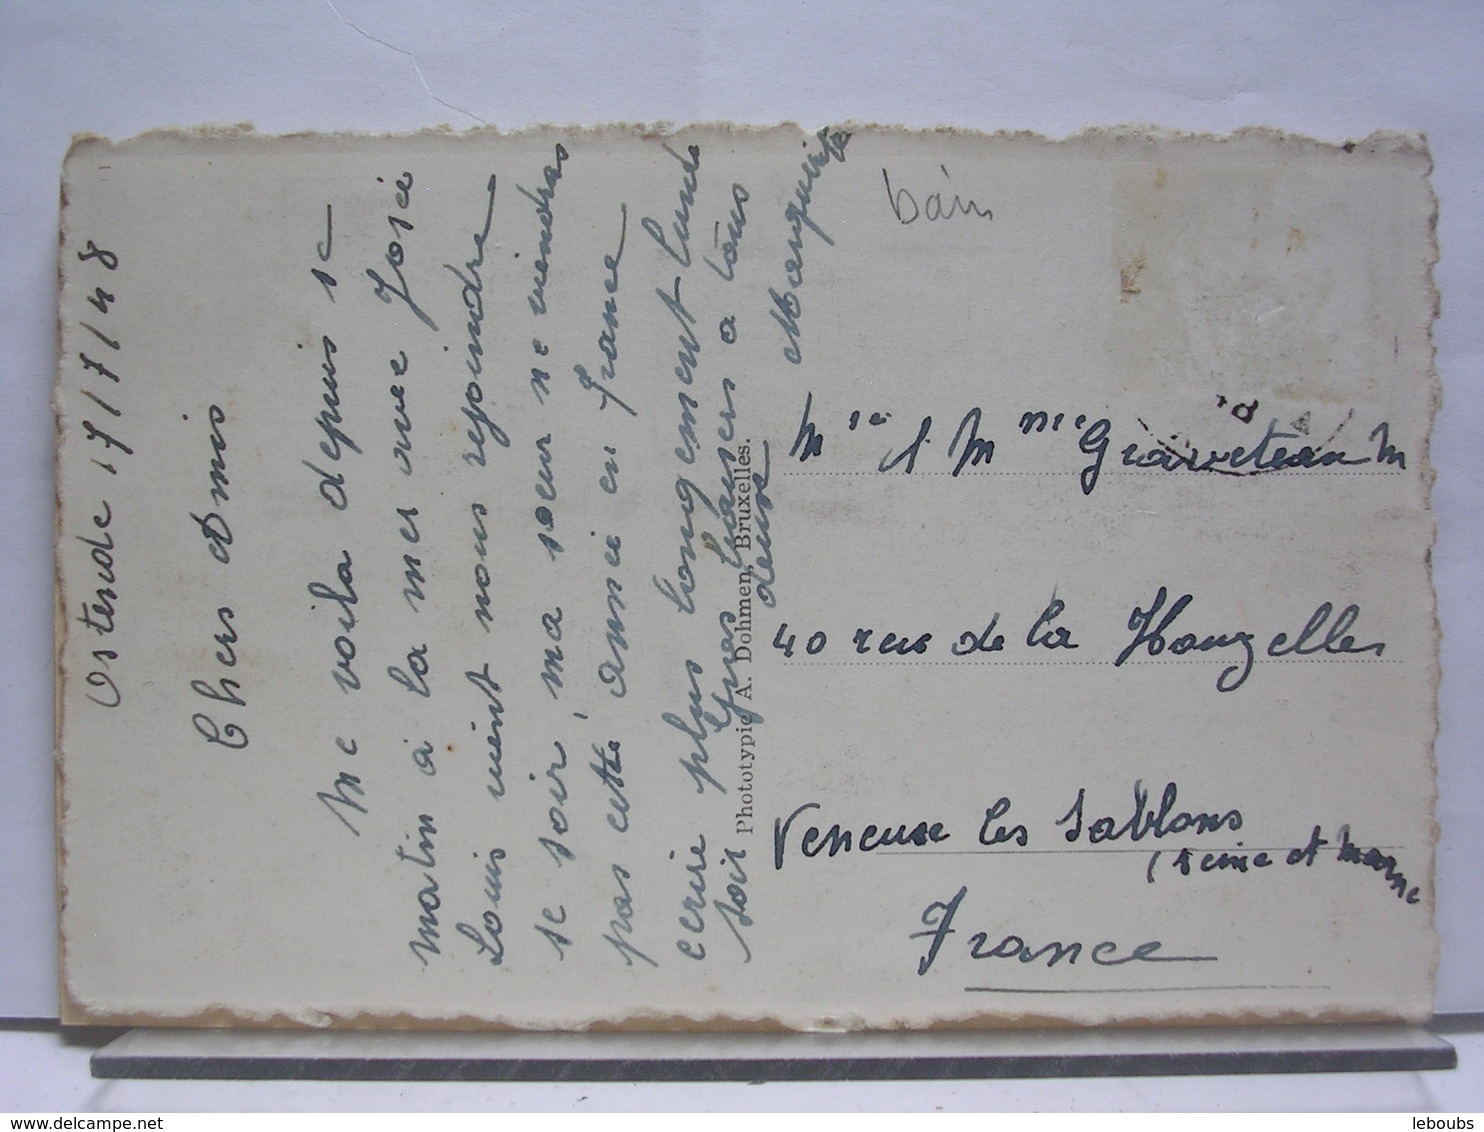 Ostende 17/7/48
Chers Amis
Me voila depuis se
matin à la mer avec Josée
Louis vient nous rejoindre
se soir, ma soeur ne viendras
pas cette année en France
ecrire plus longuement lundi
soir Gros baisers a tous
deux Marguerite
bain
Phototypie A. Dohmen, Bruxelles.
Mme Graveteau M
40 rue de la Houzelles
Veneuse les Sablons
(Seine et Marne
France
delcampe.net
leboubs